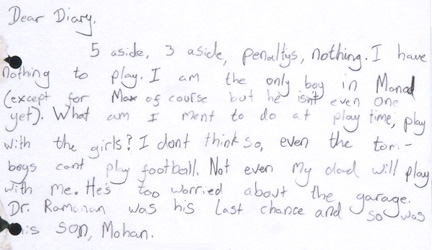 Dear Diary,
5 aside, 3 aside, penaltys, nothing. I have
nothing to play. I am the only boy in Monad
(except for Max of course but he isn't even one
yet). What am I ment to do at play time, play
with the girls? I dont think so, even the tom-
boys cant play football. Not even my dad will play
with me. He's too worried about the garage.
Dr. Ramanan was his last chance and so was
his son, Mohan.